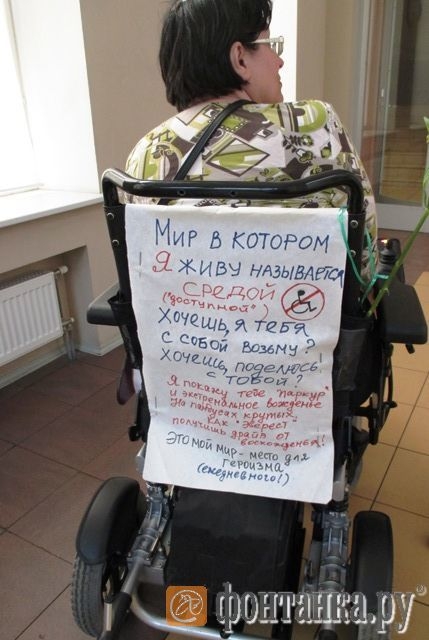 Мир в котором
Я живу называется
средой
("доступной")
Хочешь, я тебя
с собой возьму?
Хочешь, поделюсь!
с тобой?
Я покажу тебе "паркур"
и экстремальное вожденье
На пандусах крутых,
как "Эверест"
получишь драйв от
восхожденья!
Это мой мир - место для
героизма
(ежедневного!)
фонтанка.ру